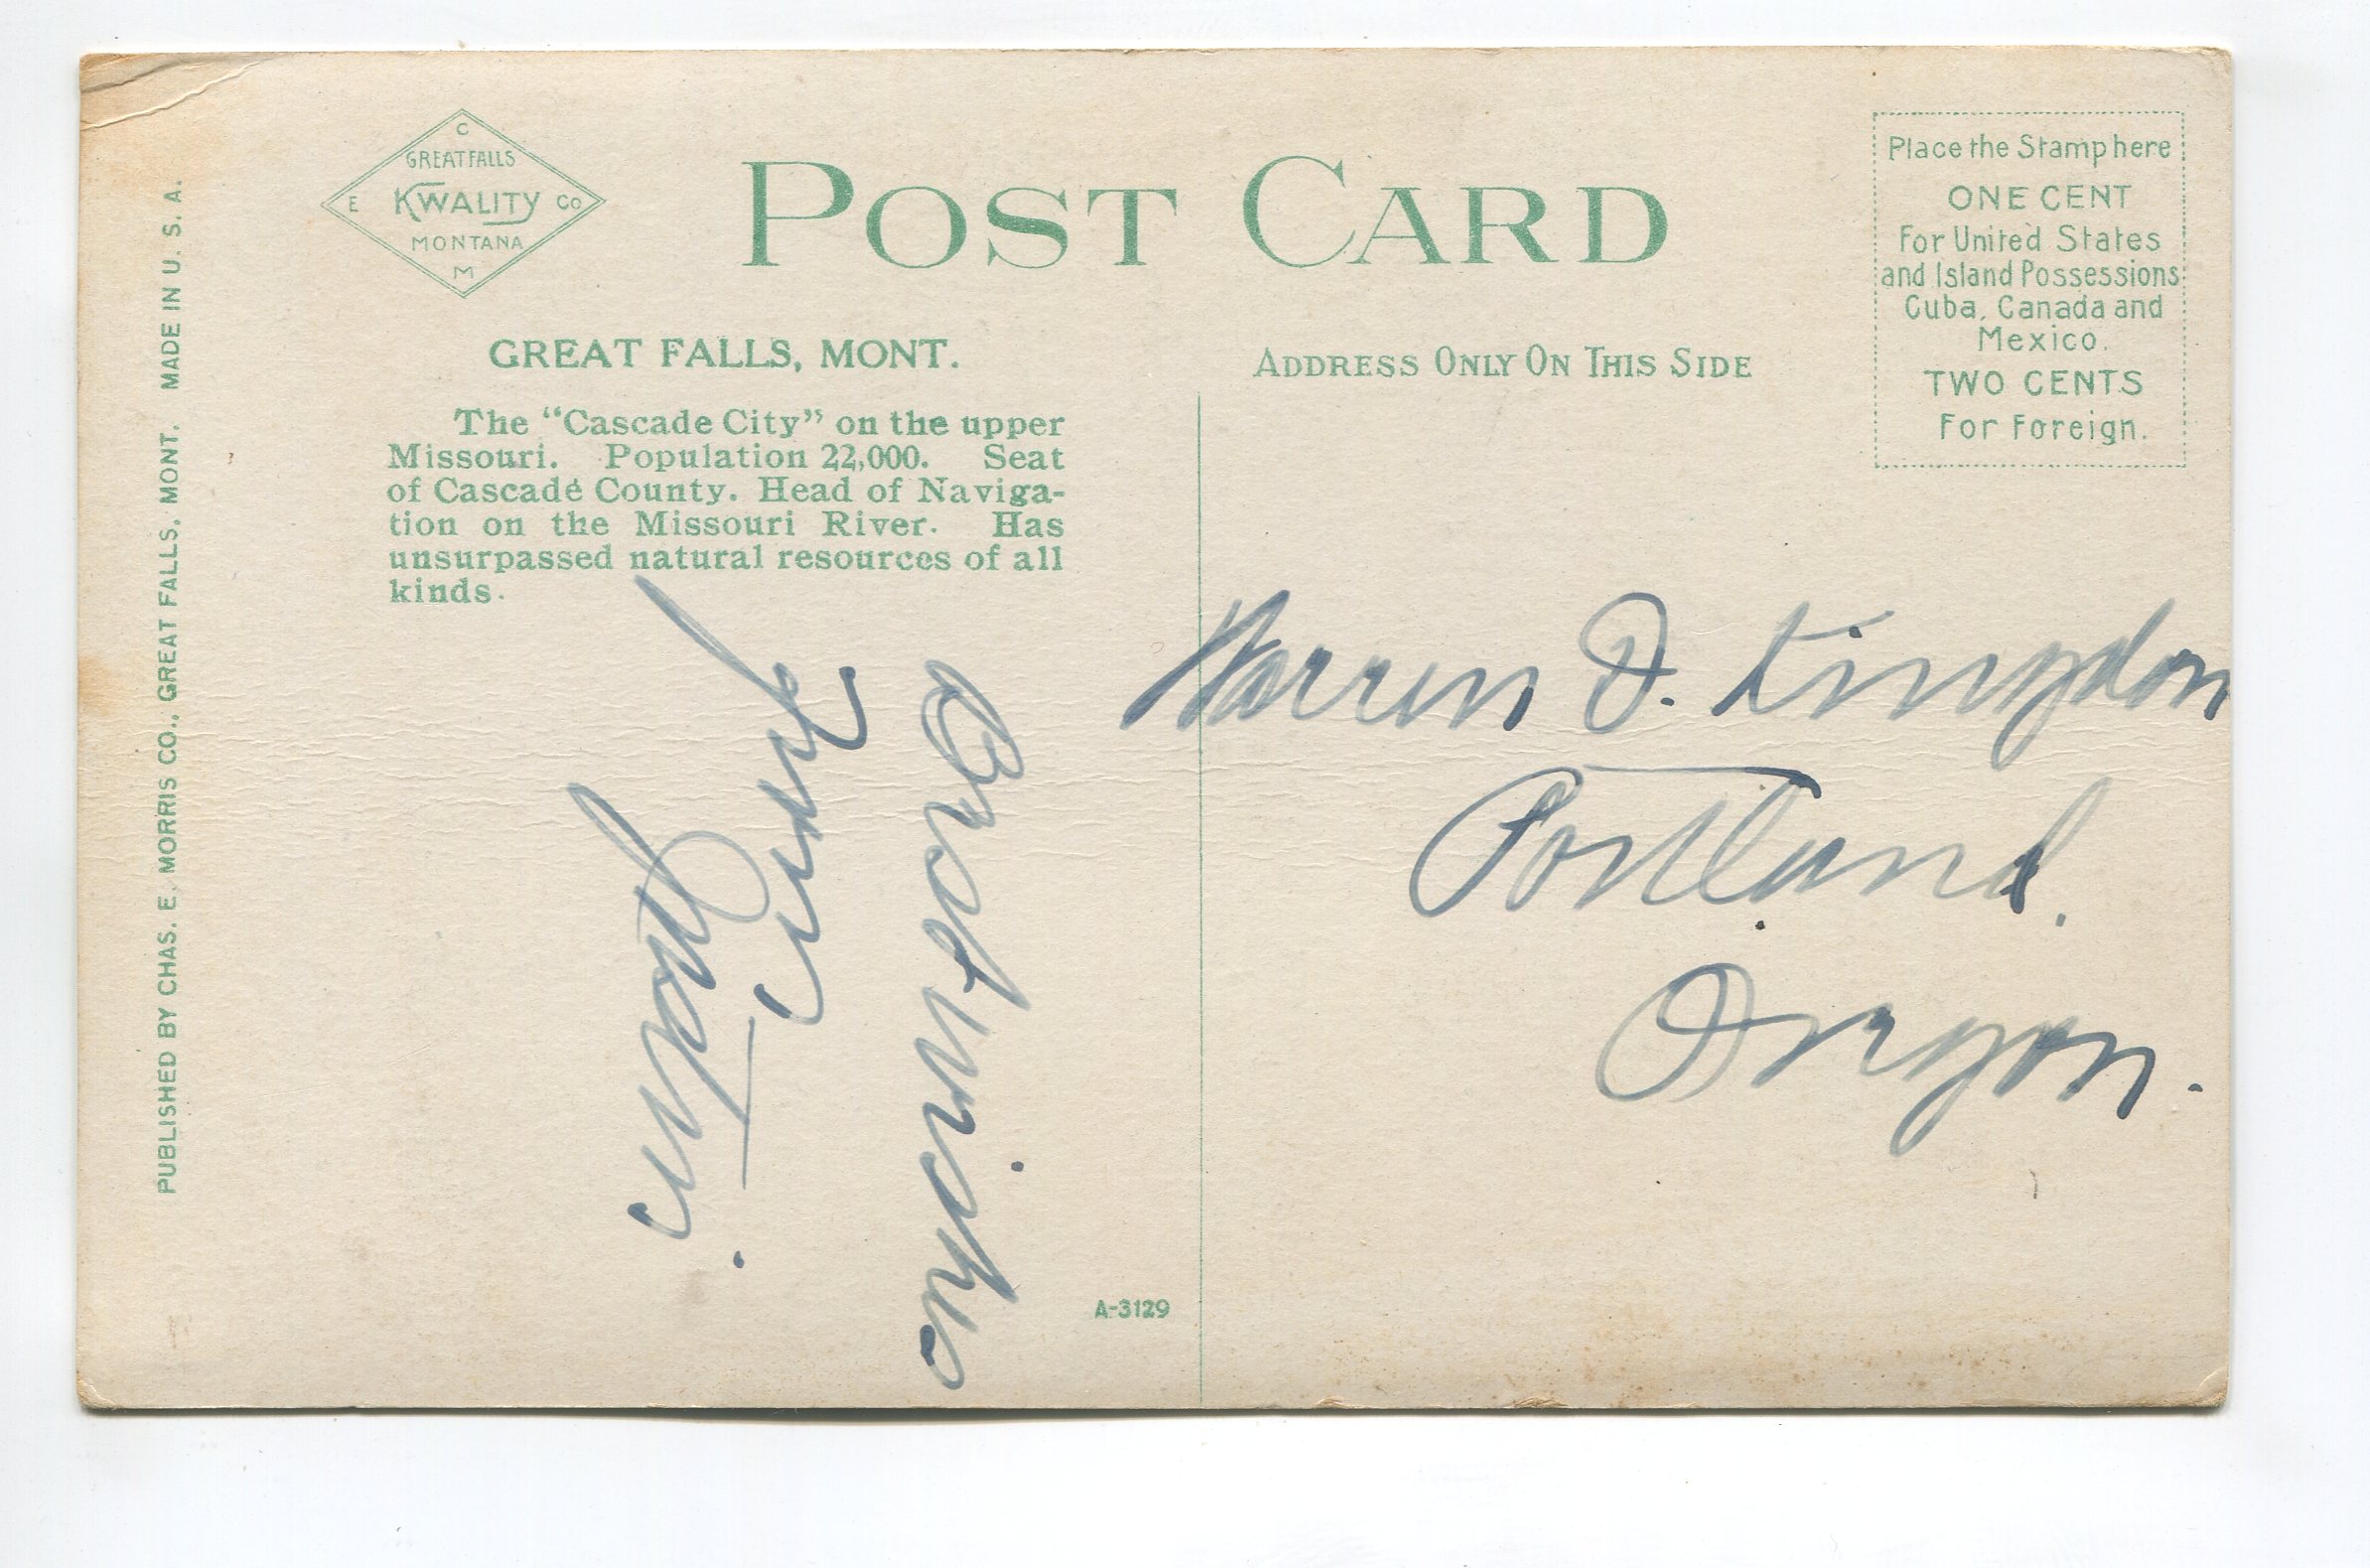 C
GREAT FALLS
E KWALITY CO
MONTANA
M
POST CARD
Place the Stamp here
ONE CENT
For United States
and Island Possessions
Cuba, Canada and
Mexico.
TWO CENTS
For Foreign.
GREAT FALLS, MONT.
The “Cascade City” on the upper
Missouri. Population 22,000. Seat
of Cascade County. Head of Naviga-
tion on the Missouri River. Has
unsurpassed natural resources of all
kinds.
ADDRESS ONLY ON THIS SIDE
Warren D. Kingdon
Portland.
Oregon.
Best wishes
A-3129
PUBLISHED BY CHAS. E. MORRIS CO., GREAT FALLS, MONT. MADE IN U. S. A.